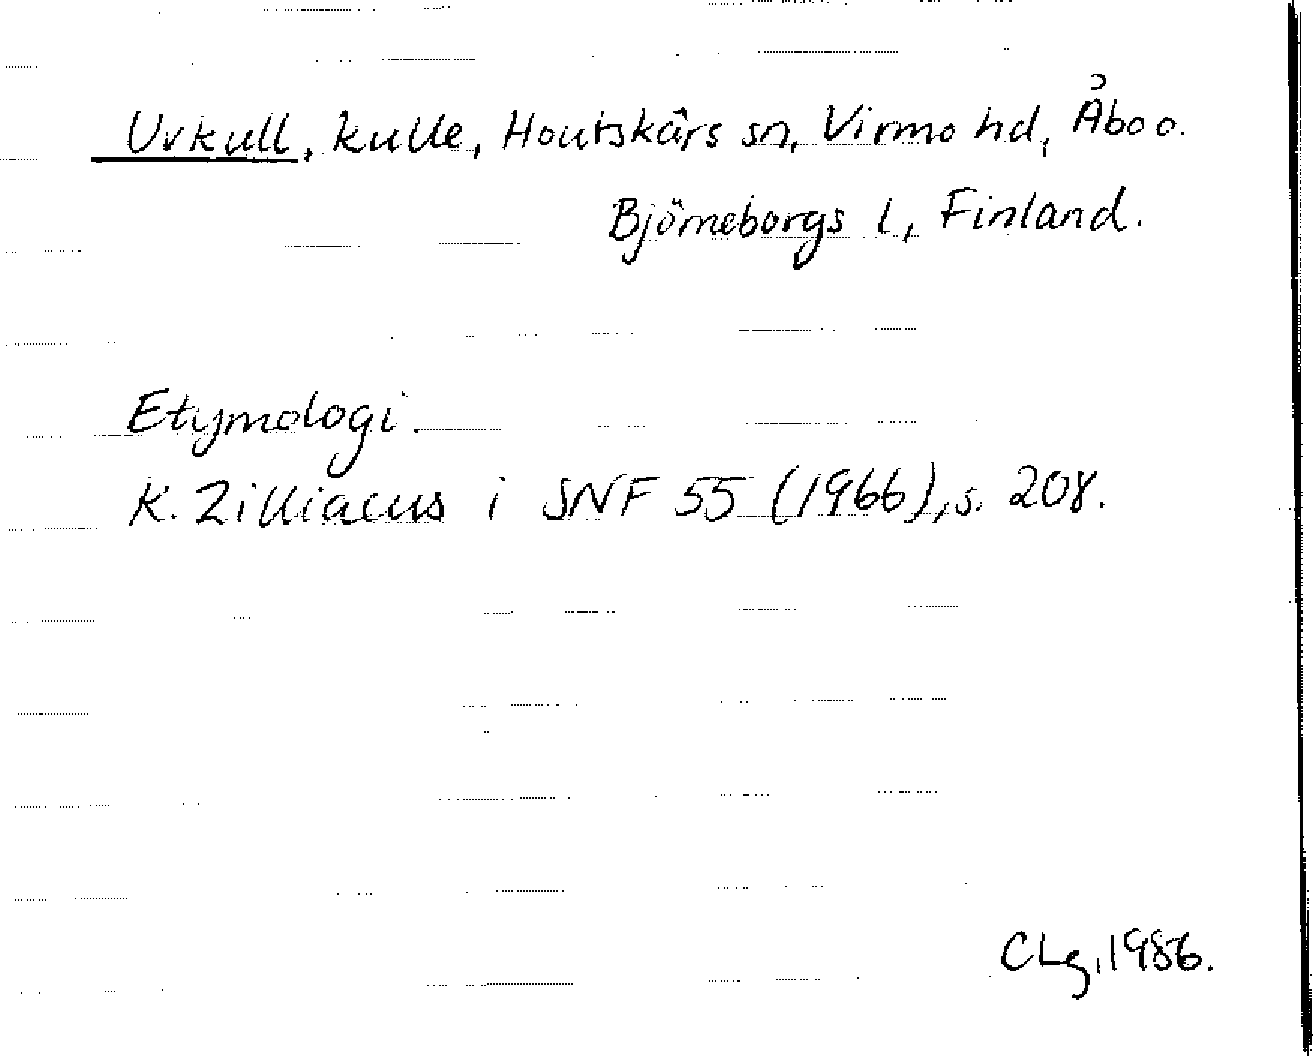 Uvkull, kulle, Houtskärs sn, Virmo hd, Åbo o.
Björneborgs l, Finland.
Etymologi.
K. Zilliacus i SNF 55 (1966), s. 208.
CLg, 1986.